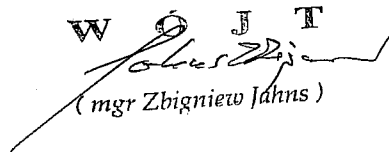 W Ó J T
( mgr Zbigniew Jahns )